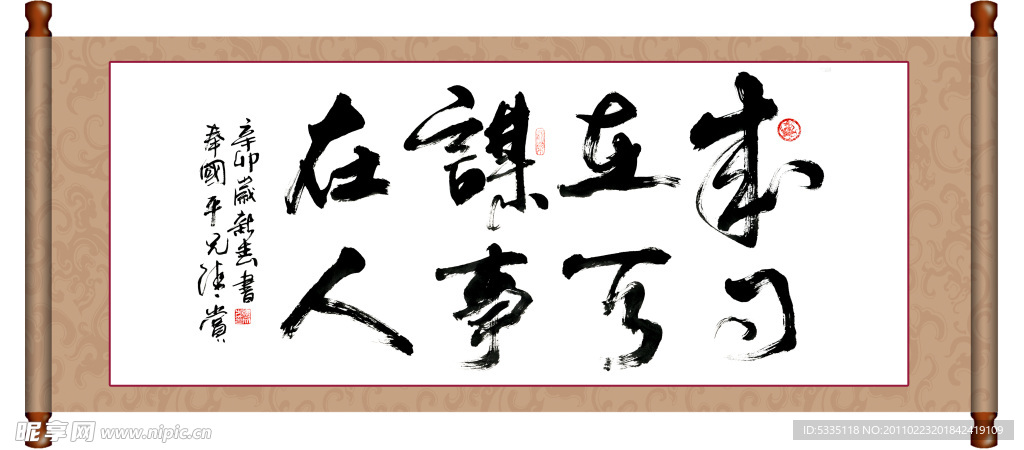 成事
在天
謀事
在人
辛卯歲新春書
奉國平兄賞
昵享网 www.nipic.cn
ID:5335118 NO:20110223201842419109